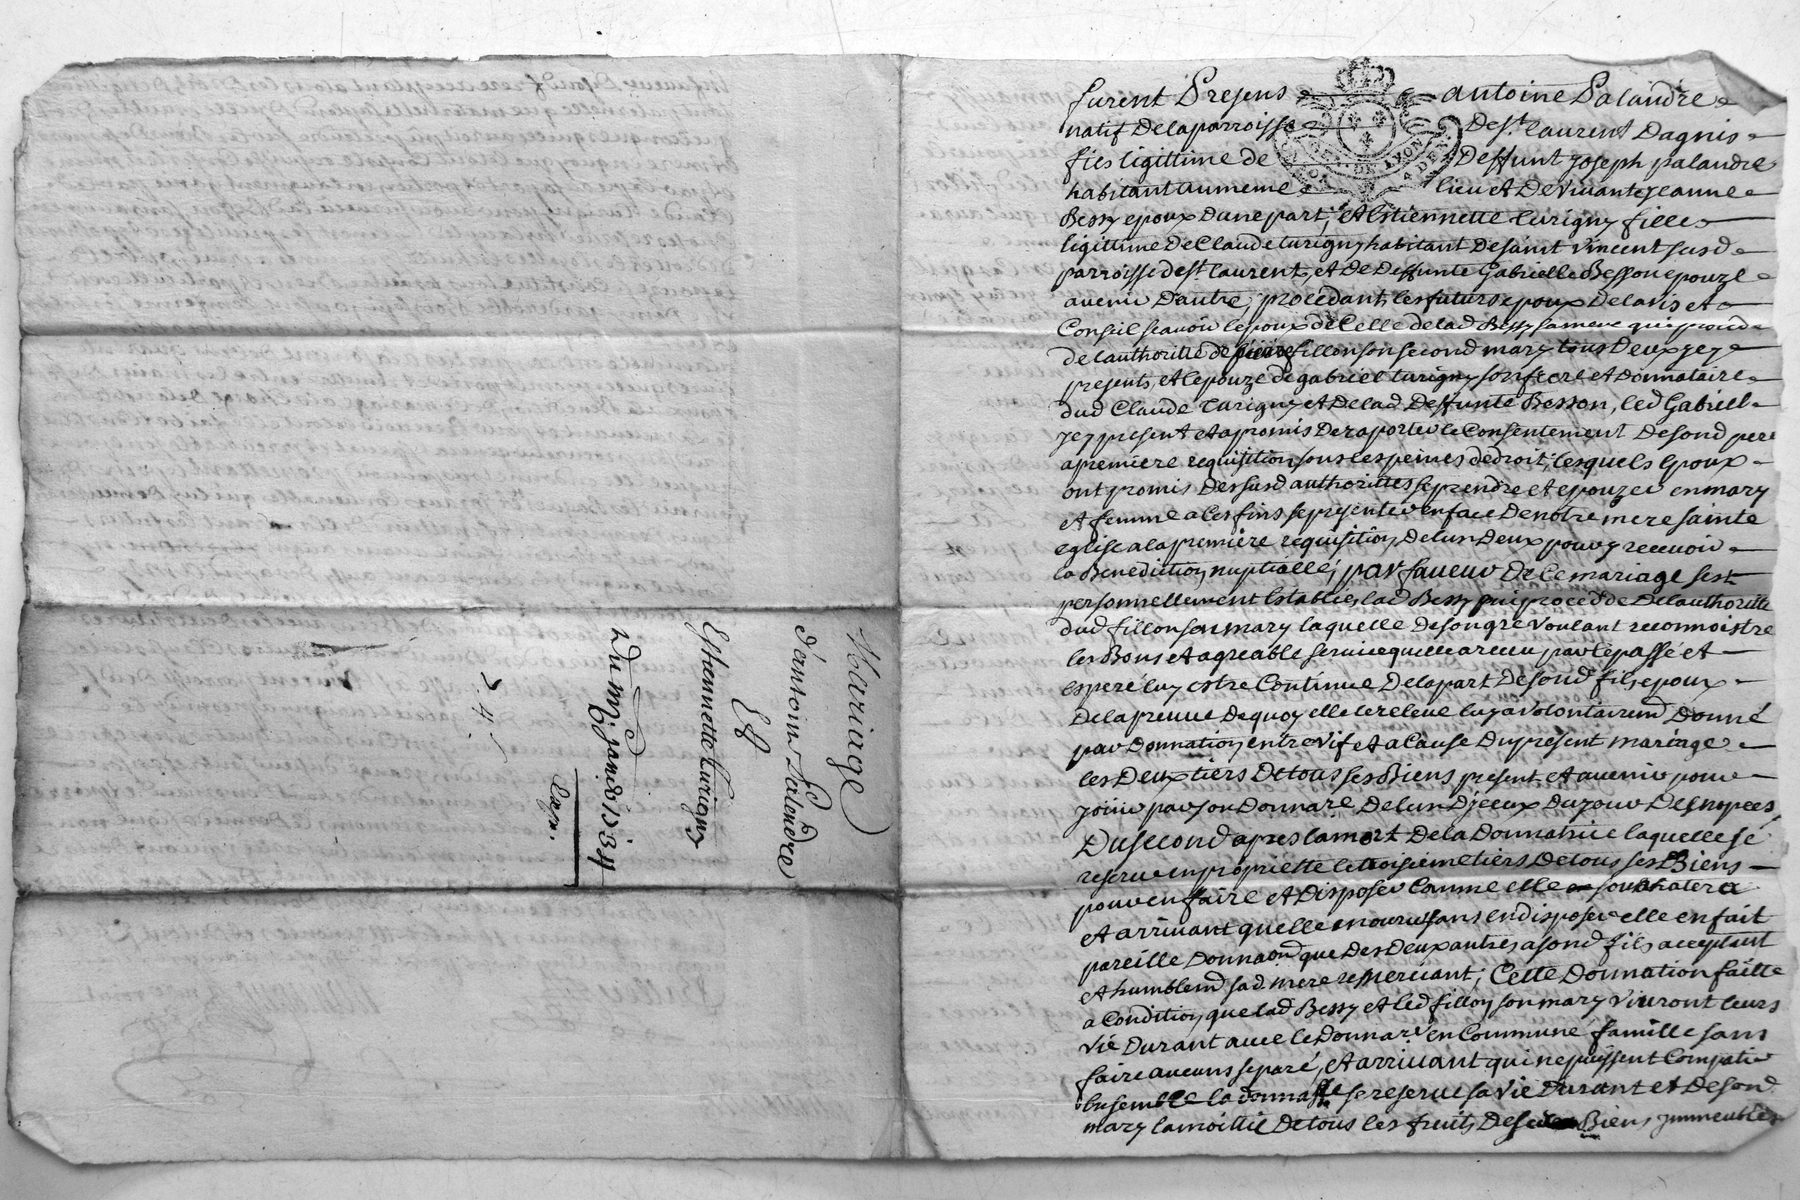 Mariage
d'antoine Palendre
Et
Estiennette Turigny
Du my janv 1734
Exp.
furent Presens antoine Palandre
natif Delaparroisse Des.t laurent Dagnis
fils ligittime de Deffunt joseph palandre
habitant aumeme lieu et De vivante jeanne
Bessy epoux Dune part, et Estiennette turigny fille
ligittime De Claude turigny habitant Desaint vincent susd
parroisse dest laurent, et De Deffunte Gabrielle Besson epouze
avenir Dautre, procédant, les futurs epoux Delavis et
Conseil scavoir lepoux de Celle delad Bessy samere qui procede
de lauthoritté de pierre fillon son second mary tous Deux jcy
presents, et lepouze de gabriel turigny son frere et Donnataire
dud Claude turigny et Delad Deffunte Besson, led Gabriell
jcy present et apromis De raporter le Consentement Desond pere
apremiere requisition sous les peines dedroit, lesquels Epoux
ont promis Dessusd authorittés se prendre et epouzer en mary
et femme a ces fins se presenter en face De notre mere sainte
eglise ala premiere requisition Delun Deux pour y recevoir
la Benediction nuptialle; par faveur De Ce mariage sest
personnellement Establie, lad Bessy qui procede De lauthoritté
dud fillon son mary laquelle Deson gré voulant reconnoistre
les Bons et agreable service quelle a receu par lepassé et
espere luy estre Continué Delapart Desond fils epoux
De lapreuve Dequoy elle le releve luy a volontairemd Donné
par Donnation entre vif et a Cause Du present mariage
les Deux tiers De tous ses Biens present et avenir pour
joüir par son Donnare Delun Djceux Dujour Des nopces,
Dusecond apres lamort Dela Donnatrice laquelle se
reserve en propriette le troisieme tiers Detous ses Biens
pour en faire et Disposer Comme elle souhaitera
et arrivant quelle mourut sans en disposer elle en fait
pareille Donnaon que Des Deux autres a sond fils acceptant
et humblemd sad mere remerciant; Cette Donnation faitte
a Condition que lad Bessy et led fillon son mary vivront leurs
vie Durant avec le Donnare en Commune famille sans
faire aucuns separé, et arrivant qui ne puissent Compatir
Ensemble la donnatrice se reserve sa vie Durant et Desond
mary lamoittié De tous les fruits De Biens jmmeubles